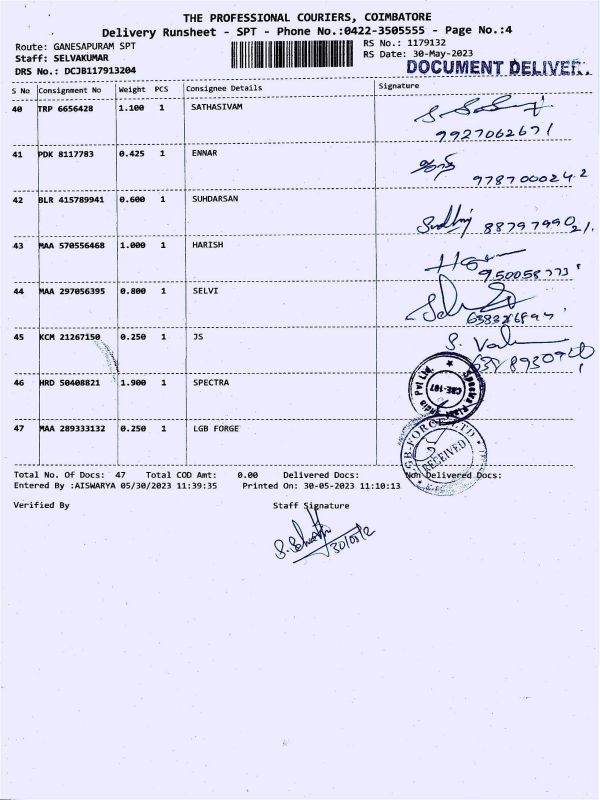 THE PROFESSIONAL COURIERS, COIMBATORE
Delivery Runsheet - SPT - Phone No.:0422-3505555 - Page No.:4
Route: GANESAPURAM SPT
RS No.: 1179132
Staff: SELVAKUMAR
RS Date: 30-May-2023
DRS No.: DCJB117913204
DOCUMENT DELIVER
S No Consignment No Weight PCS Consignee Details Signature
40 TRP 6656428 1.100 1 SATHASIVAM
9927062671
41 PDK 8117783 0.425 1 ENNAR
9787000242
42 BLR 415789941 0.600 1 SUHDARSAN
43 MAA 570556468 1.000 1 HARISH
44 MAA 297056395 0.800 1 SELVI
45 KCM 21267150 0.250 1 JS
46 HRD 50408821 1.900 1 SPECTRA
CBE-107
47 MAA 289333132 0.250 1 LGB FORGE
RECEIVED
Total No. Of Docs: 47 Total COD Amt: 0.00 Delivered Docs: Non Delivered Docs:
Entered By :AISWARYA 05/30/2023 11:39:35 Printed On: 30-05-2023 11:10:13
Verified By Staff Signature